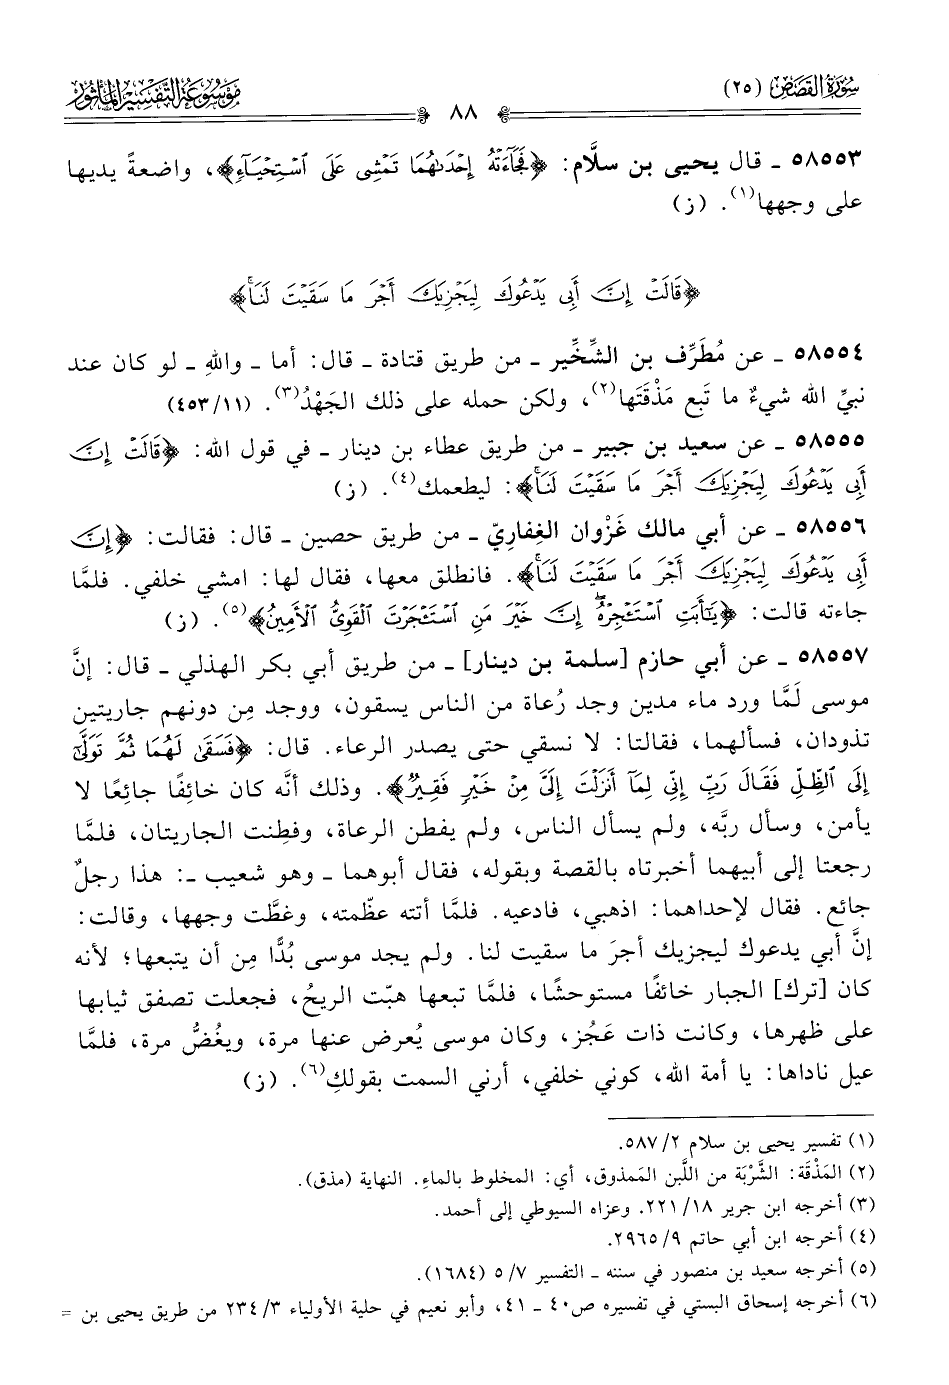 سُورَةُ القَصَص (٢٥)
٨٨
مَوْسُوعَةُ التَّفْسِيرِ المَأْثُور
٥٨٥٥٣ ـ قال يحيى بن سلَّام: ﴿فَجَآءَتْهُ إِحْدَىٰهُمَا تَمْشِى عَلَى ٱسْتِحْيَآءٍ﴾، واضعةً يديها
على وجهها(١). (ز)
﴿قَالَتْ إِنَّ أَبِى يَدْعُوكَ لِيَجْزِيَكَ أَجْرَ مَا سَقَيْتَ لَنَاۚ﴾
٥٨٥٥٤ ـ عن مُطَرِّف بن الشِّخِّير ـ من طريق قتادة ـ قال: أما ـ واللهِ ـ لو كان عند
نبيِّ الله شيءٌ ما تَبع مَذْقَتَها(٢)، ولكن حمله على ذلك الجَهْدُ(٣). (١١/٤٥٣)
٥٨٥٥٥ ـ عن سعيد بن جبير ـ من طريق عطاء بن دينار ـ في قول الله: ﴿قَالَتْ إِنَّ
أَبِى يَدْعُوكَ لِيَجْزِيَكَ أَجْرَ مَا سَقَيْتَ لَنَاۚ﴾: ليطعمك(٤). (ز)
٥٨٥٥٦ ـ عن أبي مالك غَزْوان الغِفاريّ ـ من طريق حصين ـ قال: فقالت: ﴿إِنَّ
أَبِى يَدْعُوكَ لِيَجْزِيَكَ أَجْرَ مَا سَقَيْتَ لَنَاۚ﴾. فانطلق معها، فقال لها: امشي خلفي. فلمَّا
جاءته قالت: ﴿يَٰٓأَبَتِ ٱسْتَـْٔجِرْهُۖ إِنَّ خَيْرَ مَنِ ٱسْتَـْٔجَرْتَ ٱلْقَوِىُّ ٱلْأَمِينُ﴾(٥). (ز)
٥٨٥٥٧ ـ عن أبي حازم [سلمة بن دينار] ـ من طريق أبي بكر الهذلي ـ قال: إنَّ
موسى لَمَّا ورد ماء مدين وجد رُعاة من الناس يسقون، ووجد مِن دونهم جاريتين
تذودان، فسألهما، فقالتا: لا نسقي حتى يصدر الرعاء. قال: ﴿فَسَقَىٰ لَهُمَا ثُمَّ تَوَلَّىٰٓ
إِلَى ٱلظِّلِّ فَقَالَ رَبِّ إِنِّى لِمَآ أَنزَلْتَ إِلَىَّ مِنْ خَيْرٍ فَقِيرٌ﴾. وذلك أنَّه كان خائفًا جائعًا لا
يأمن، وسأل ربَّه، ولم يسأل الناس، ولم يفطن الرعاة، وفطِنت الجاريتان، فلمَّا
رجعتا إلى أبيهما أخبرتاه بالقصة وبقوله، فقال أبوهما ـ وهو شعيب ـ: هذا رجلٌ
جائع. فقال لإحداهما: اذهبي، فادعيه. فلمَّا أتته عظّمته، وغطَّت وجهها، وقالت:
إنَّ أبي يدعوك ليجزيك أجرَ ما سقيت لنا. ولم يجد موسى بُدًّا مِن أن يتبعها؛ لأنه
كان [ترك] الجبار خائفًا مستوحشًا، فلمَّا تبعها هبّت الريحُ، فجعلت تصفق ثيابها
على ظهرها، وكانت ذات عَجُز، وكان موسى يُعرض عنها مرة، ويغُضُّ مرة، فلمَّا
عيل ناداها: يا أمة الله، كوني خلفي، أرني السمت بقولكِ(٦). (ز)
(١) تفسير يحيى بن سلام ٢/ ٥٨٧.
(٢) المَذْقَة: الشَّرْبَة من اللَّبن المَمذوق، أي: المخلوط بالماءِ. النهاية (مذق).
(٣) أخرجه ابن جرير ١٨/ ٢٢١. وعزاه السيوطي إلى أحمد.
(٤) أخرجه ابن أبي حاتم ٩/ ٢٩٦٥.
(٥) أخرجه سعيد بن منصور في سننه ـ التفسير ٧/ ٥ (١٦٨٤).
(٦) أخرجه إسحاق البستي في تفسيره ص٤٠ ـ ٤١، وأبو نعيم في حلية الأولياء ٣/ ٢٣٤ من طريق يحيى بن =